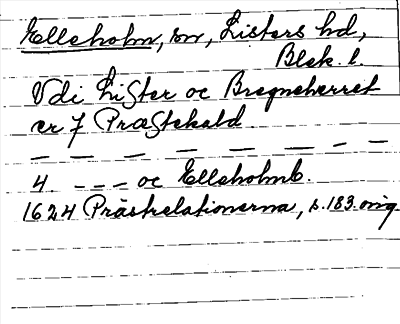 Elleholm, sn, Listers hd,
Blek. l.
Vdi Lister oc Bregneherret
er 7 Præstekald.
— — — — — — — —
4 - - - oc Elleholmb.
1624 Prästrelationerna, s. 183. orig.